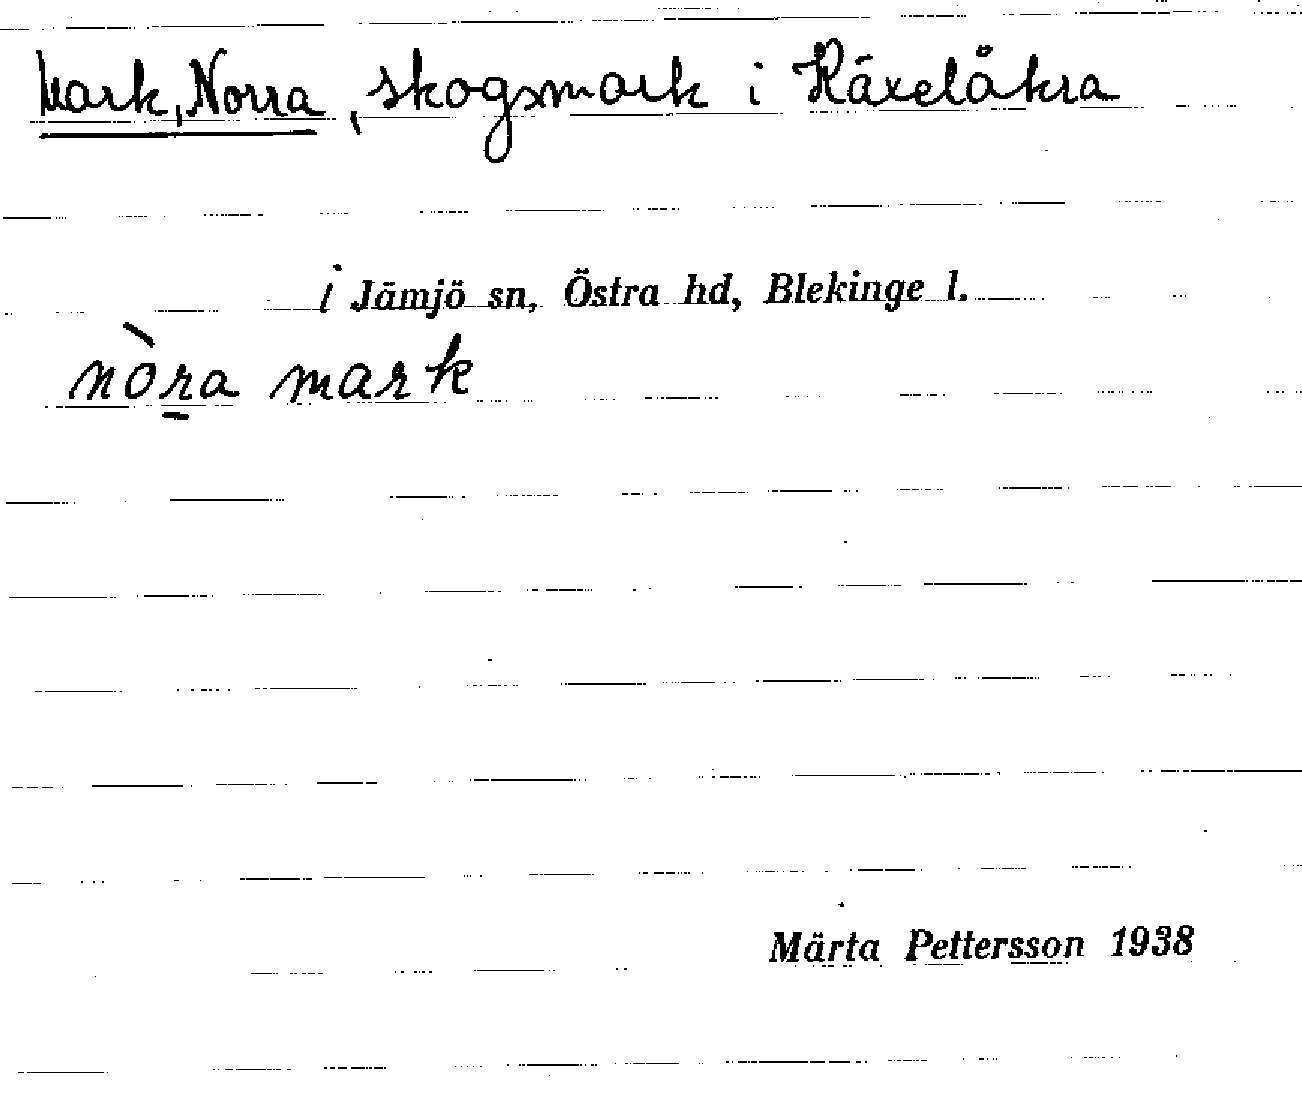 Mark, Norra, skogsmark i Häxelåkra
i Jämjö sn, Östra hd, Blekinge l.
nòr̲a mark
Märta Pettersson 1938